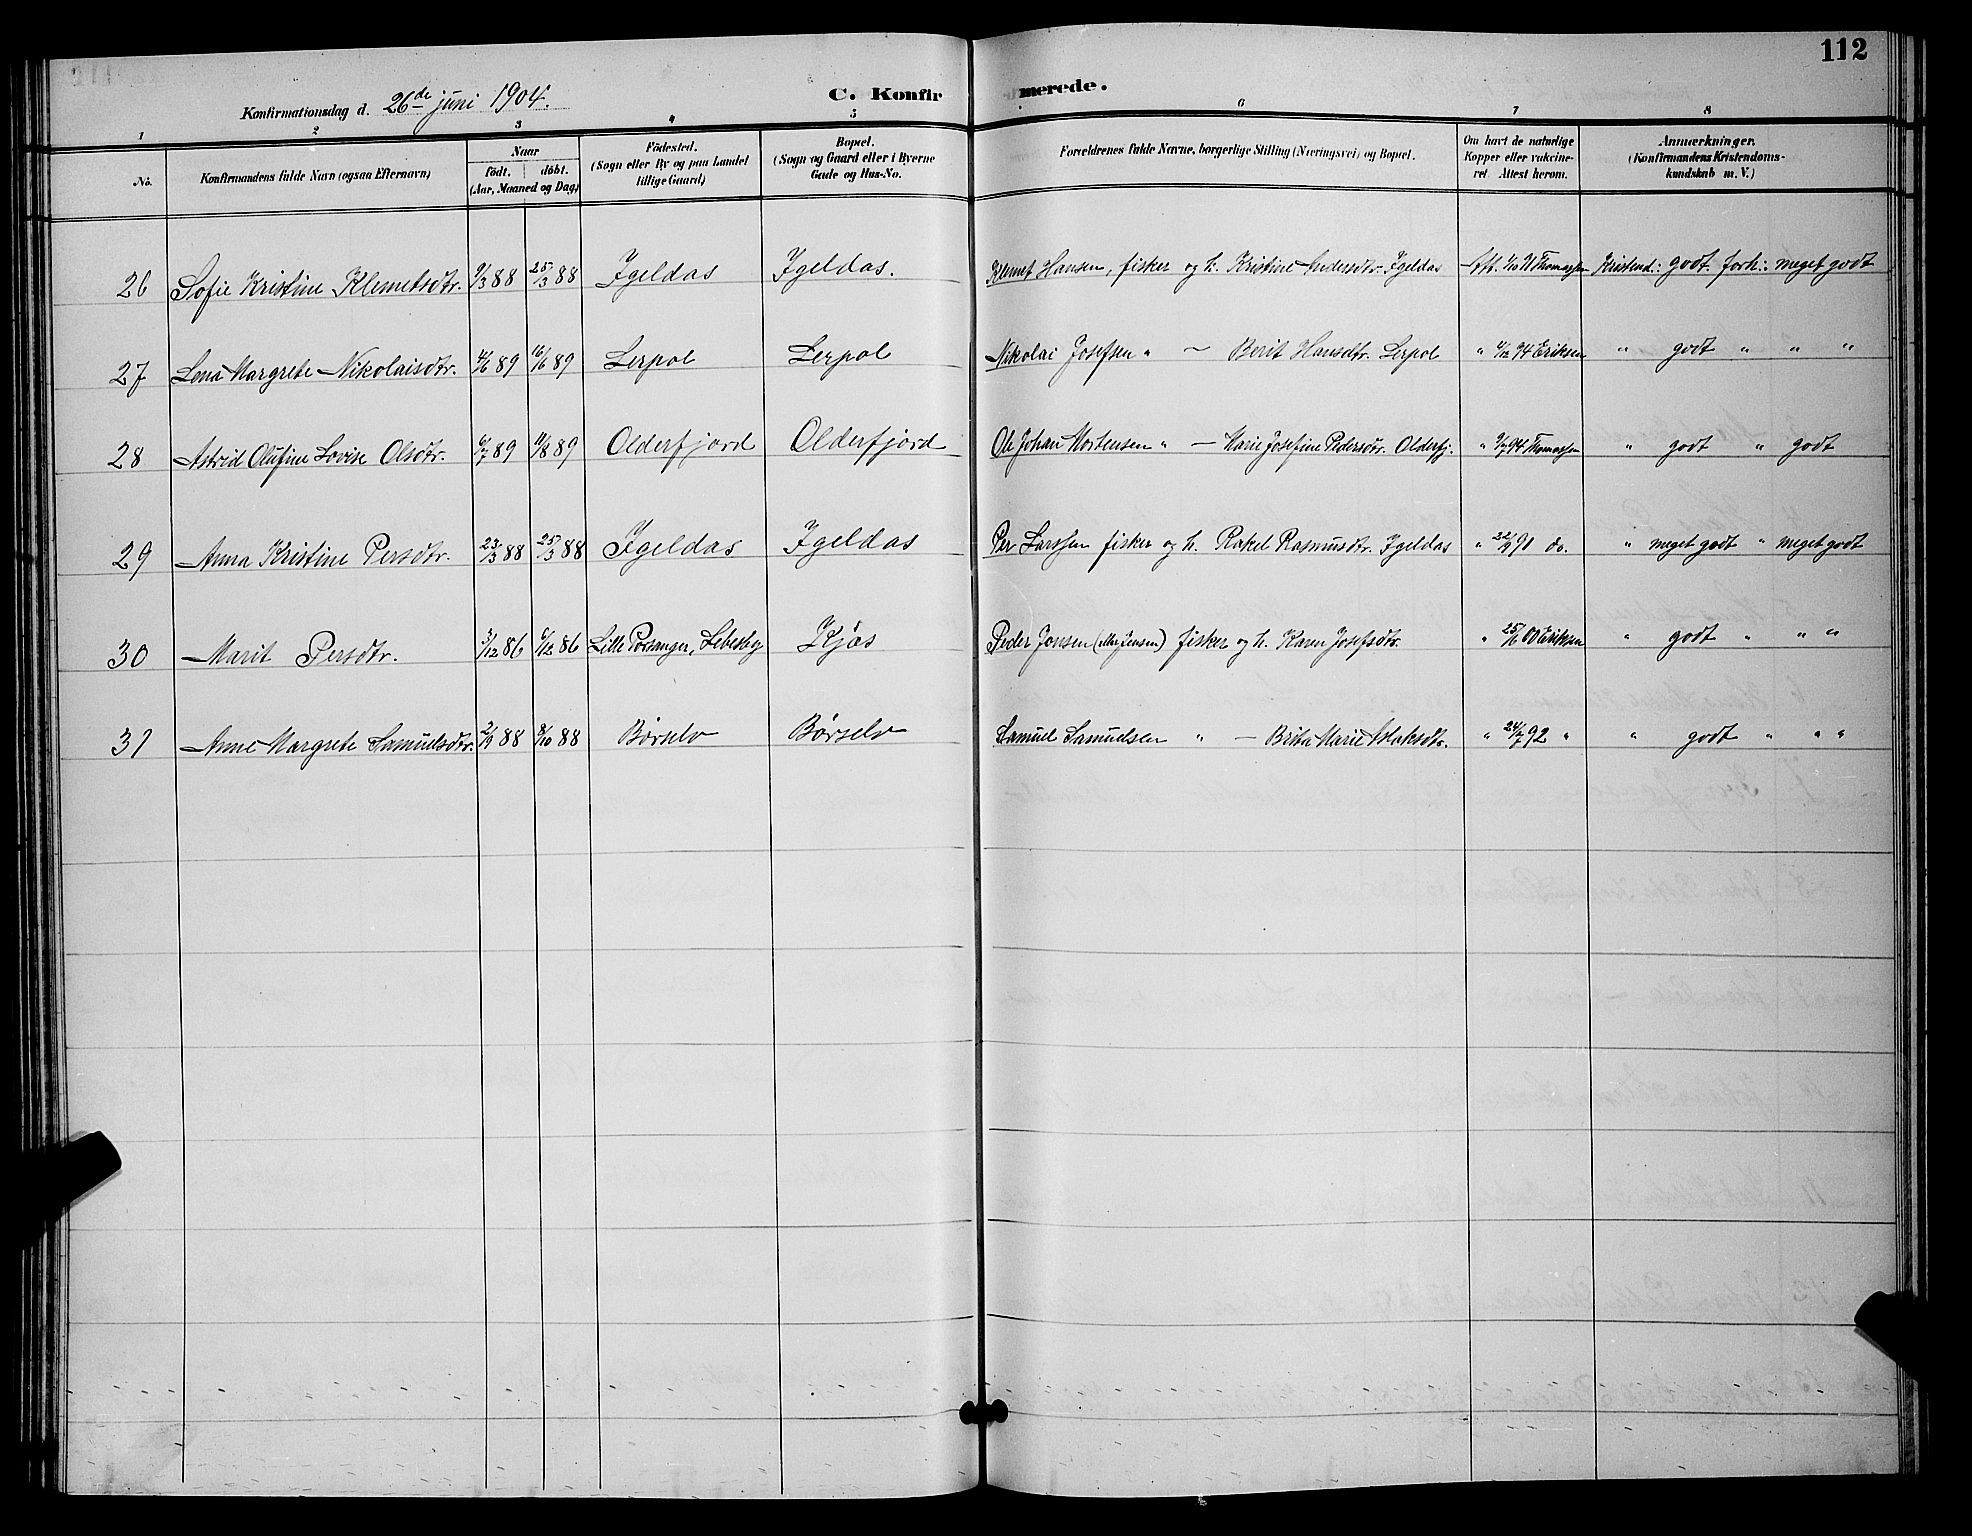 112
Konfirmationsdag d. 26de juni 1904.
C. Konfirmerede.
1 2 3 4 5 6 7 8
No.
Konfirmandens fulde Navn (ogsaa Efternavn)
Naar
født. døbt.
(Aar, Maaned og Dag)
Fødested.
(Sogn eller By og paa Landet
tillige Gaard)
Bopæl.
(Sogn og Gaard eller i Byerne
Gade og Hus-No.
Forældrenes fulde Navne, borgerlige Stilling (Næringsvei) og Bopæl.
Om havt de naturlige
Kopper eller vaccine-
ret Attest herom.
Anmærkninger.
(Konfirmandens Kristendoms-
kundskab m. V.)
26 Sofie Kristine Klemetsdtr. 9/3 88 25/3 88 Igeldas Igeldas. Klemet Hansen, fisker og h. Kristine Andersdtr. Igeldas Thomassen Kristend.: godt forh.: meget godt
27 Lena Margrete Nikolaisdtr. 89 16/6 89 Lerpol Lerpol Nikolai Josefsen " — Berit Hansdtr. Lerpol " 94 Eriksen " godt " " "
28 Astrid Olufine Lovise Olsdtr. 6/7 89 11/8 89 Olderfjord Olderfjord Ole Johan Mortensen " — Marie Josefine Pedersdtr. Olderfj. " 94 Thomassen " godt " godt
29 Anna Kristine Persdtr. 23/3 88 25/3 88 Igeldas Igeldas Per Larssen fisker og h. Rakel Rasmusdtr. Igeldas " do. " meget godt " meget godt
30 Marit Persdtr. 3/12 86 6/12 86 Lille Porsanger, Lebesby Kjæs Peder Jonsen (Jensen) fisker og h. Karen Josefsdtr. " 25/6 00 Eriksen " godt " " "
31 Anne Margrete Samuelsdtr. 2/9 88 8/10 88 Børselv Børselv Samuel Samuelsen " — Brita Marie Islaksdtr. " 24/7 92 " " godt " " "